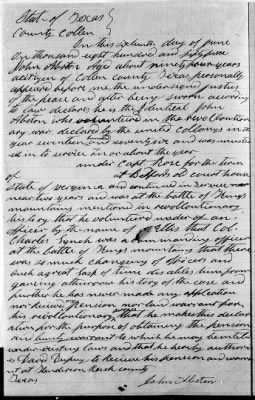 State of Texas
County Collen
On this sixteenth day of June
One thousand eight hundred and fifty five
John Abston Aged about ninety four years
a citizen of Collen county Texas personally
appeared before me the undersigned justice
of the peace and after being sworn according
to law declares he is the identical John
Abston who volunteered in the revolution
ary war declared by the united collonys in
year seventeen hundred seventy six and was muster
ed in to service on or about the year
under Capt Rose for the term
of at Bedford old court house
State of Verginia and continued in service near
near two years and was at the battle of Kings
mountain mentioned in revolutionary
history that he volunteered under of an
officer by the name of that Col.
Charles Lynch was a commanding officer
at the battle of Kings mountain that there
was so much changing of officers and
such a great laps of time disables him from
giveing a thorough history of the case and
further he has never made any application
nor received Pension nor land warrant for
his revolutionary that he makes this declar
ation for the purpose of obtaining the pension
and bounty warrant to which he may be entitled
under existing laws and that he hereby authorises
David to Recieve his pension and warra
nt at Henderson Rusk county
Texas
John Abston